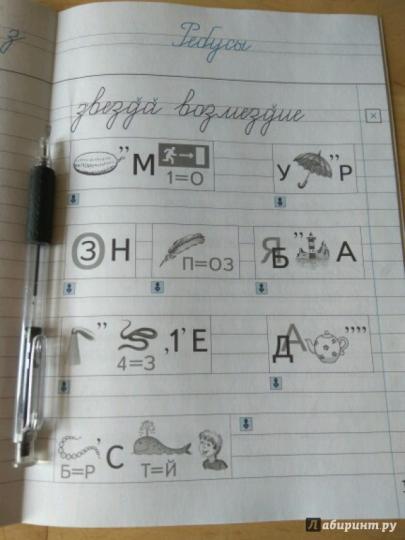 з
Ребусы
звезда возмездие
,, М 1=О
У ,, Р
О З Н
П=ОЗ
Я Б ,, А
,, 4=З ,1' Е
Д А ,,,,
Б=Р ' С Т=Й
Лабиринт.ру